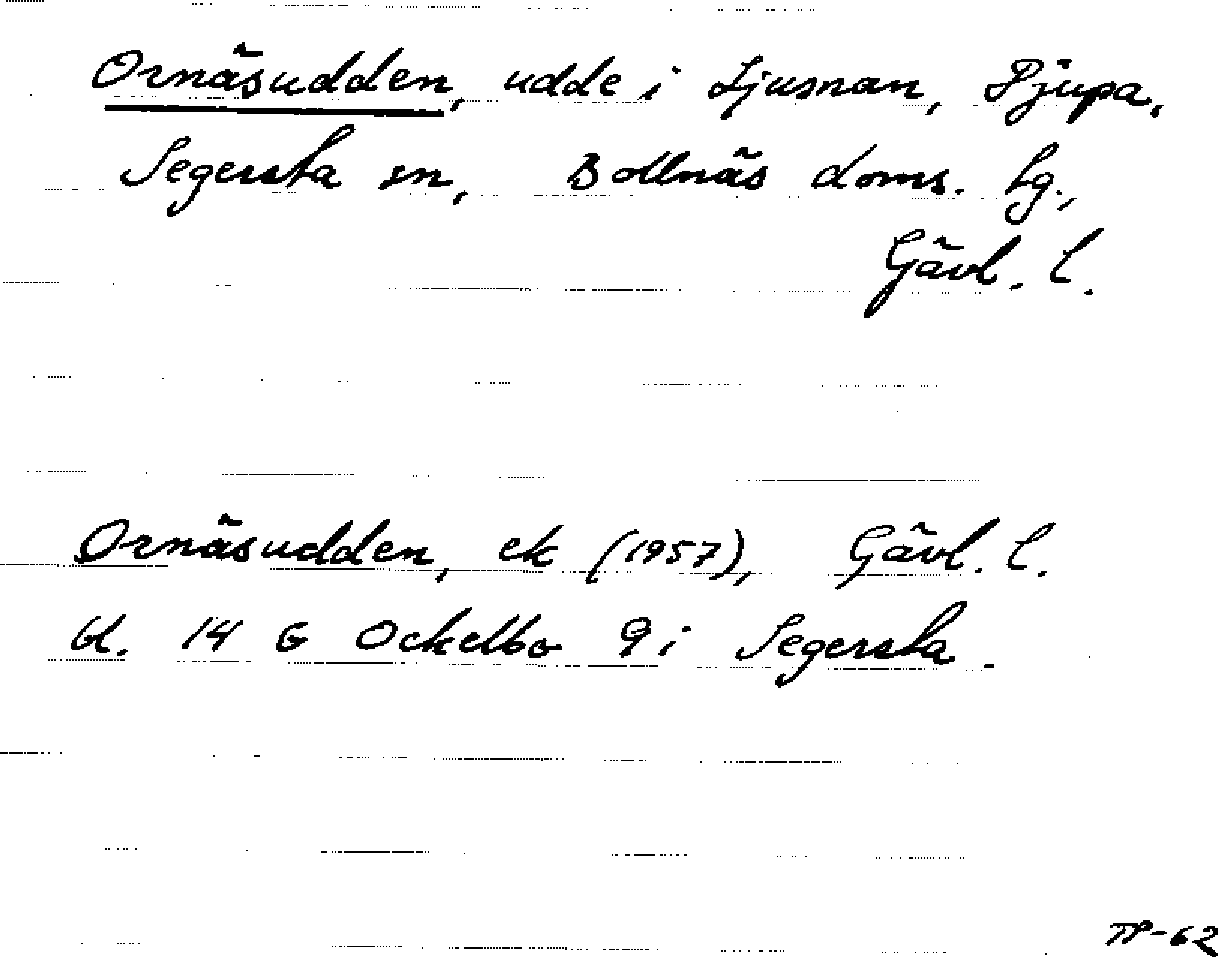 Ornäsudden, udde i Ljusnan, Pjupa,
Segersta sn, Bollnäs doms. lg.,
Gävl. l.
Ornäsudden, ek (1957), Gävl. l.
bl. 14 G Ockelbo 9 i Segersta.
TP-62